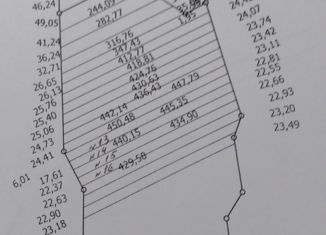 46,24
49,05
41,24
36,24
32,71
26,65
26,13
25,76
25,40
25,06
24,73
24,41
6,01
17,61
22,37
22,63
22,90
23,18
244,09
282,77
1,95
316,76
347,43
417,77
418,81
424,76
430,63
436,43
447,79
442,14
445,35
450,48
434,90
440,15
429,58
N 13
N 14
N 15
N 16
24,07
23,74
23,42
23,11
22,81
22,55
22,66
22,93
23,20
23,49